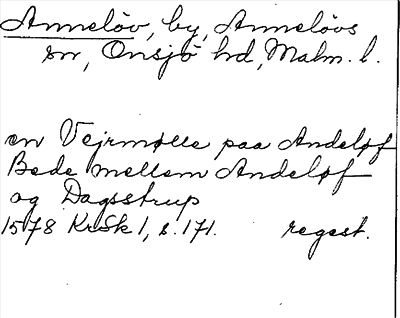 Annelöv, by, Annelövs
sn, Onsjö hd, Malm. l.
en Vejrmølle paa Andeløf
Bede mellem Andeløf
og Dagsstrup
1578 KrSk 1, s. 171. regest.